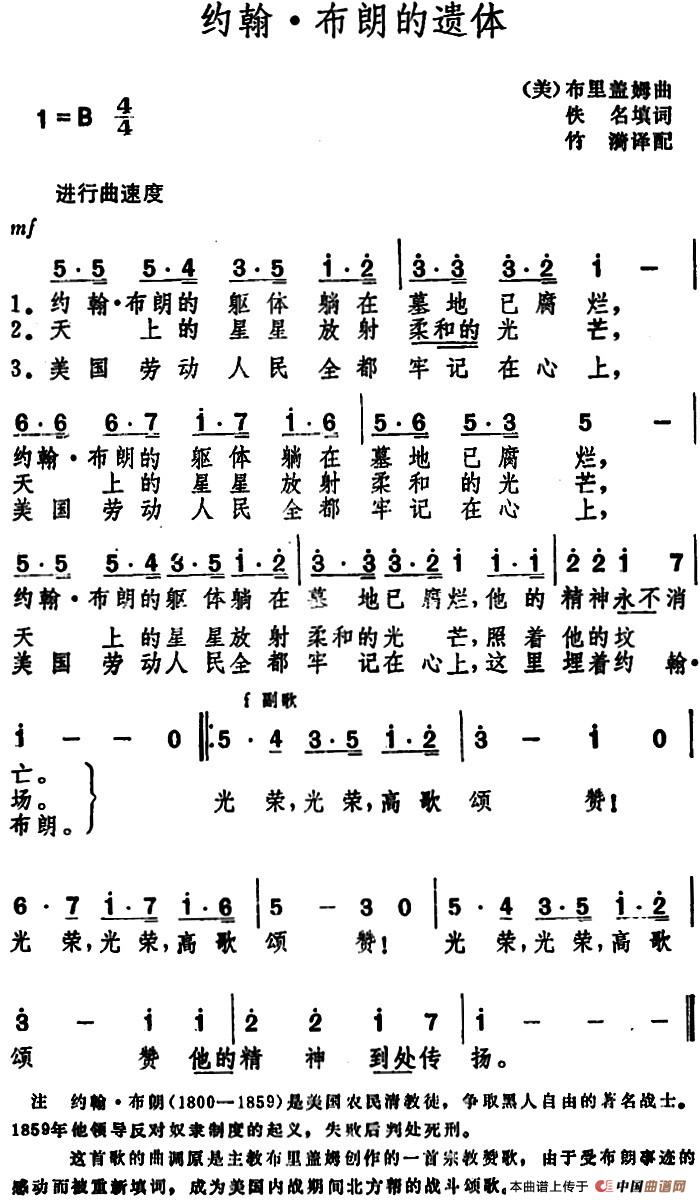 约翰·布朗的遗体
1=B 4/4
(美)布里盖姆曲
佚 名填词
竹 漪译配
进行曲速度
mf
5·5 5·4 3·5 i·2̇ | 3̇·3̇ 3̇·2̇ i - |
1。约翰·布朗的 躯体 躺在 墓地 已腐 烂,
2。天 上的 星星 放射 柔和的 光 芒,
3。美国 劳动 人民 全都 牢记 在心 上,
6·6 6·7 i·7 i·6 | 5·6 5·3 5 - |
约翰·布朗的 躯体 躺在 墓地 已腐 烂,
天 上的 星星 放射 柔和 的光 芒,
美国 劳动 人民 全都 牢记 在心 上,
5·5 5·4 3·5 i·2̇ | 3̇·3̇ 3̇·2̇ i i·i | 2̇ 2̇ i 7 |
约翰·布朗的躯体躺在 墓 地已腐烂,他的 精神永不消
天 上的星星放射 柔和的光 芒,照着 他的坟
美国 劳动人民全都 牢 记在心上,这里 埋着约 翰·
f 副歌
i - - 0 |: 5·4 3·5 i·2̇ | 3̇ - i 0 |
亡。
场。
布朗。
光 荣,光荣,高歌 颂 赞!
6·7 i·7 i·6 | 5 - 3 0 | 5·4 3·5 i·2̇ |
光 荣,光荣,高歌 颂 赞! 光 荣,光荣,高歌
3̇ - i i | 2̇ 2̇ i 7 | i - - - |
颂 赞 他的精 神 到处传 扬。
注 约翰·布朗(1800—1859)是美国农民清教徒,争取黑人自由的著名战士。
1859年他领导反对奴隶制度的起义,失败后判处死刑。
这首歌的曲调原是主教布里盖姆创作的一首宗教赞歌,由于受布朗事迹的
感动而被重新填词,成为美国内战期间北方帮的战斗颂歌。
本曲谱上传于 中国曲谱网